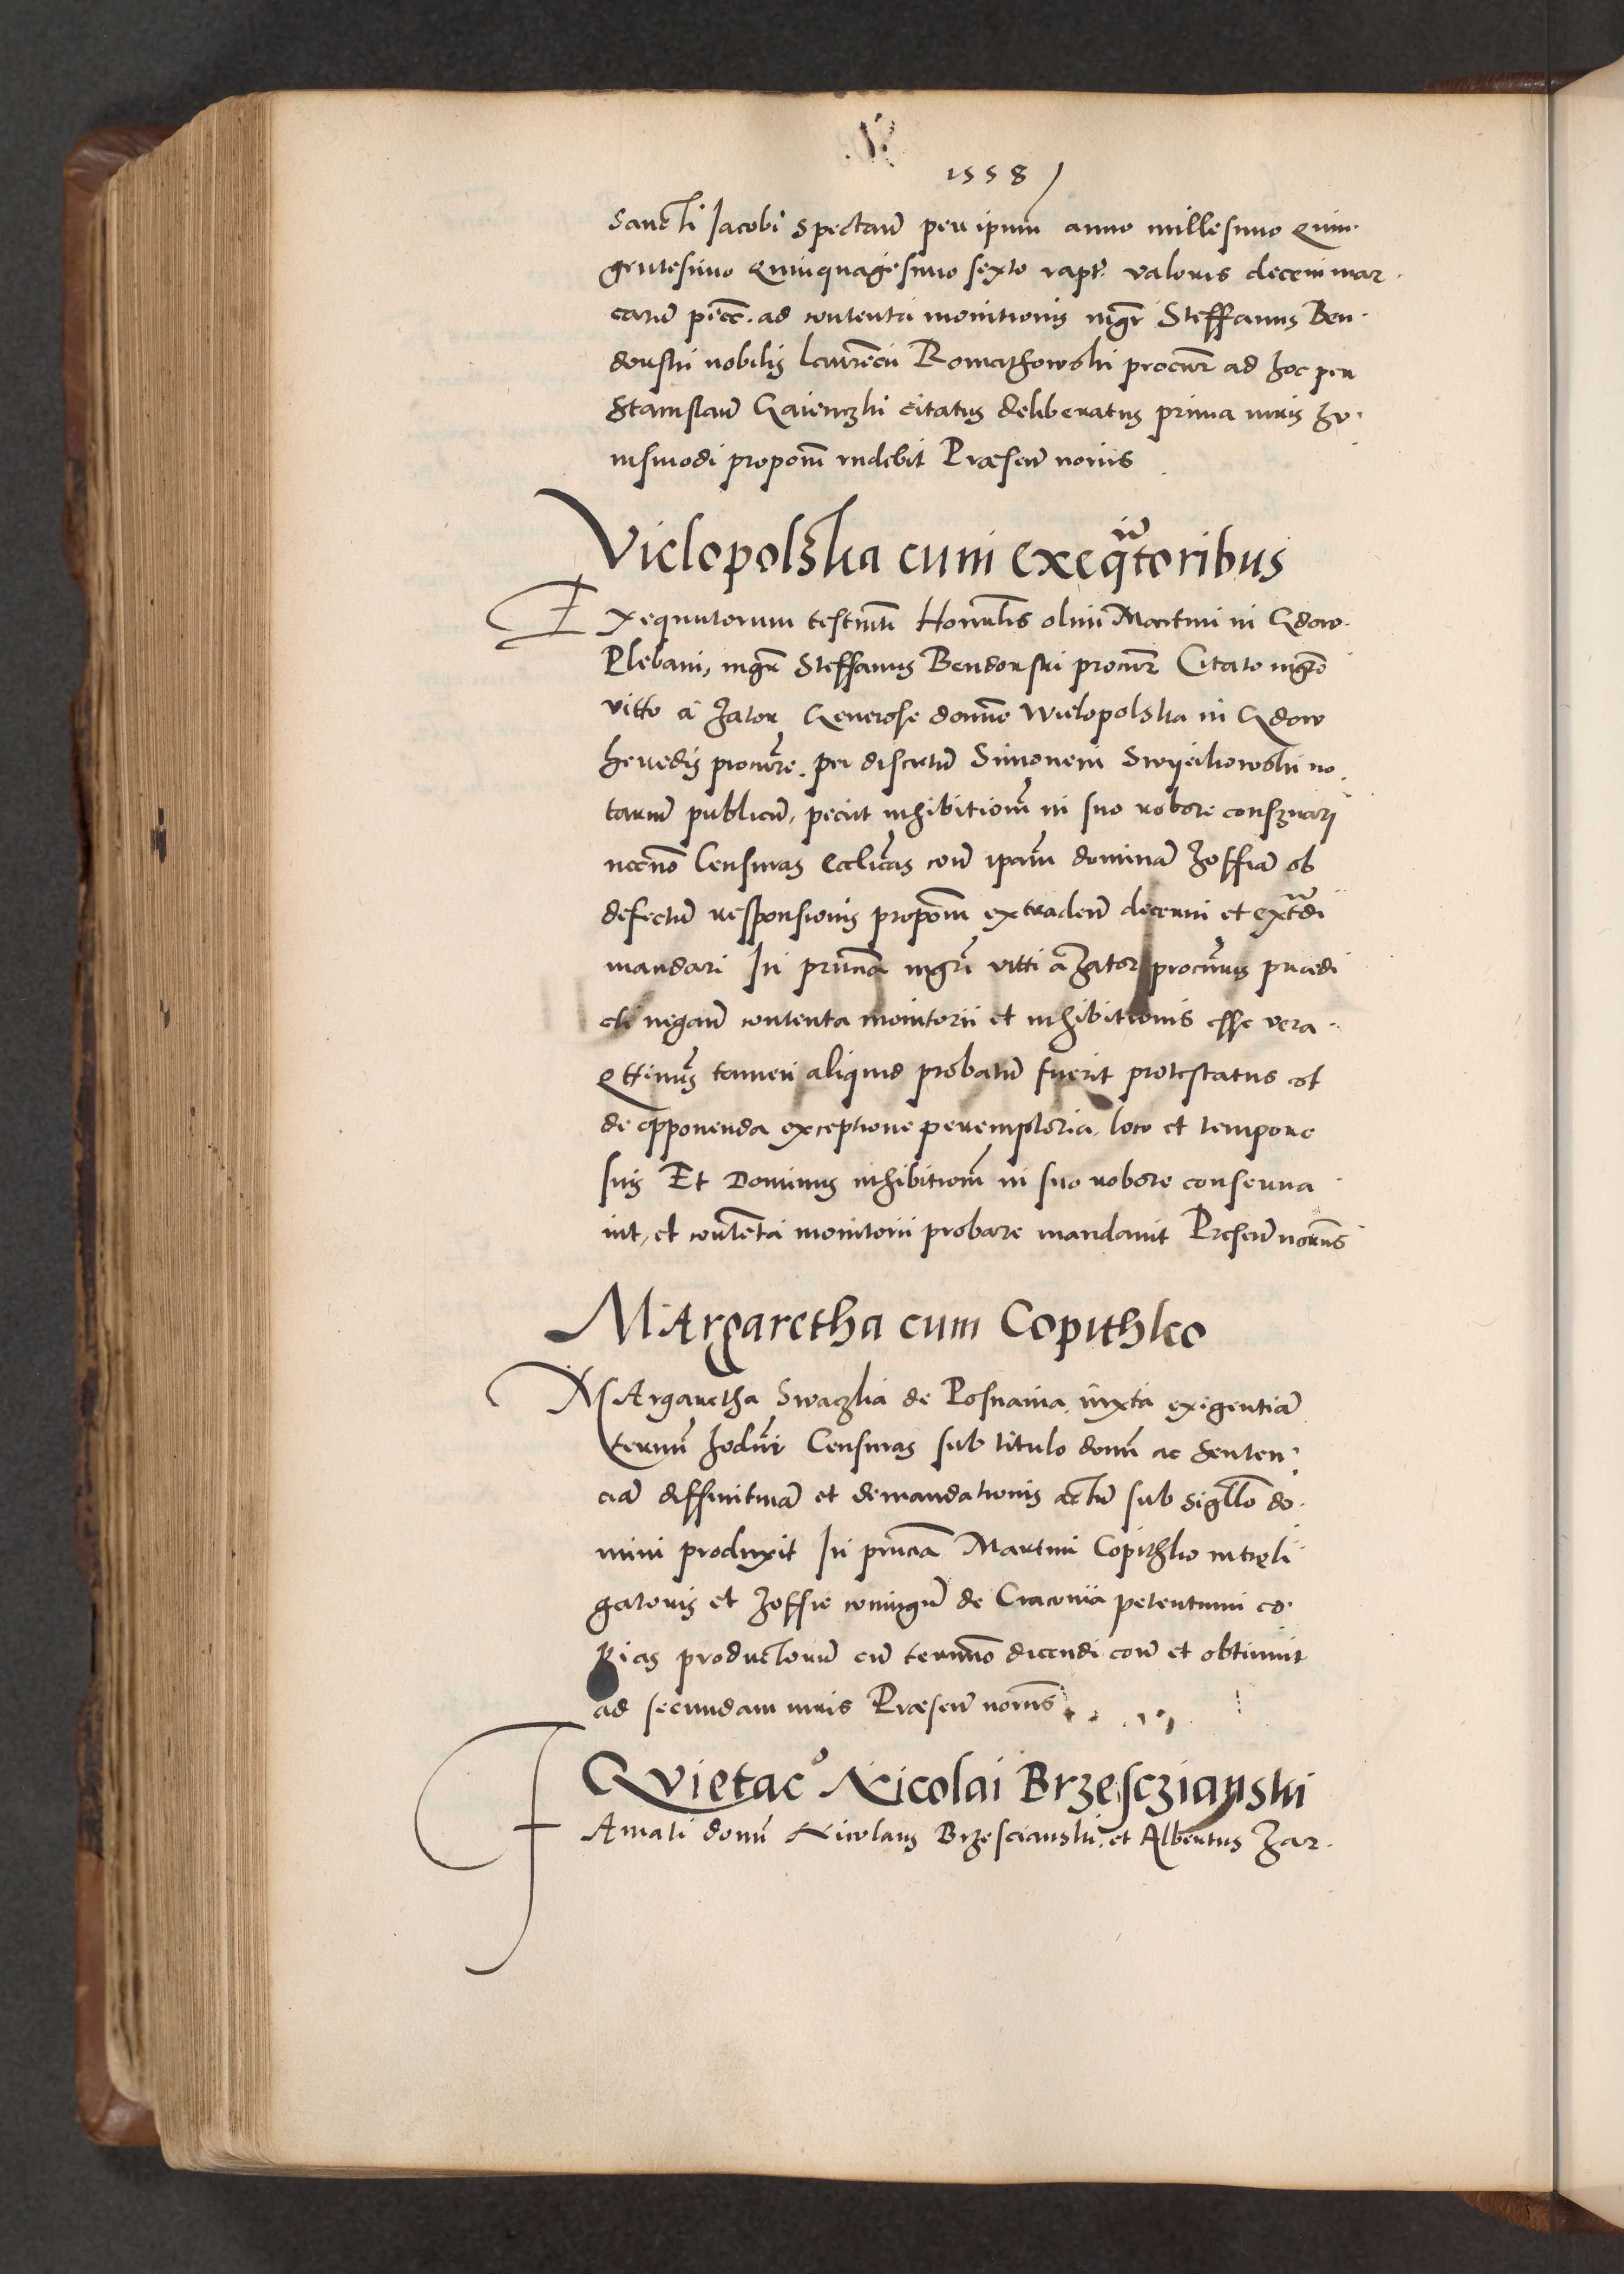 1558
Sancti Jacobi spectan̄ per ipum̄ anno millesimo Quin·
gentesimo Quinquagesimo sexto rapt? valoris decem mar·
carū ad contenta monitionis mgr̄ Steffanus Ben·
dorski nobilis Laurēcii Romazhowski procur̄ ad hoc per
Stanislaū Gaienczki citatus deliberatus prima iuris hu·
iusmodi proponī rndebit Præsen̄ noriis
Vielopolska cum exeq̄toribus
Exequutorum testm̄ti Honrabĺis olim Martini in Gdow·
Plebani, mgr̄ Steffanus Bendorski procur̄ Citato mgrō
vitto a Zator Generose domne Wielopolska in Gdow
heredis procur̄re. per discretū Simonem Swyeihowski no·
tariū publicū, peciit inhibitionē in suo robore consȝuari
necnō Censuras Ecclīcas con̄ ipām dominā Zoffiā ob
defectū responsionis proponī extraden̄ decerni et ext̄di
mandari In prn̄cia mgr̄i vitti a Zator procur̄is predi
cti negan̄ contenta monitorii et inhibitionis esse vera·
Qttinus tamen aliquid probatū fuerit protestatus est
de opponenda exceptione peremptoria, loco et tempore
suis Et Dominus inhibitionē in suo robore conserua
uit, et contēta monitorii probare mandauit Presen̄ norius
MArgaretha cum Copithko
MArgaretha Swaczka de Posnania iuxta exigentiā
termī hodnī Censuras sub titulo domī ac senten·
ciā diffinitiuā et demandationis actū sub sigllō do·
mini produxit In prn̄cia Martini Copithko introli
gatoris et Zoffie coniugū de Cracouia petentium co·
pias productorū cū termnō dicendi con̄ et obtinuit
ad secundam iuris Præsen̄ noriis
Quietacº Nicolai Brzesczianski
FAmati domī Nicolaus Brzescianski, et Albertus Zar·